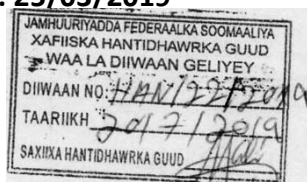 : 25/05/2019
JAMHUURIYADDA FEDERAALKA SOOMAALIYA
XAFIISKA HANTIDHAWRKA GUUD
WAA LA DIIWAAN GELIYEY
DIIWAAN NO: HAN/22/2019
TAARIIKH 20/7/2019
SAXIIXA HANTIDHAWRKA GUUD